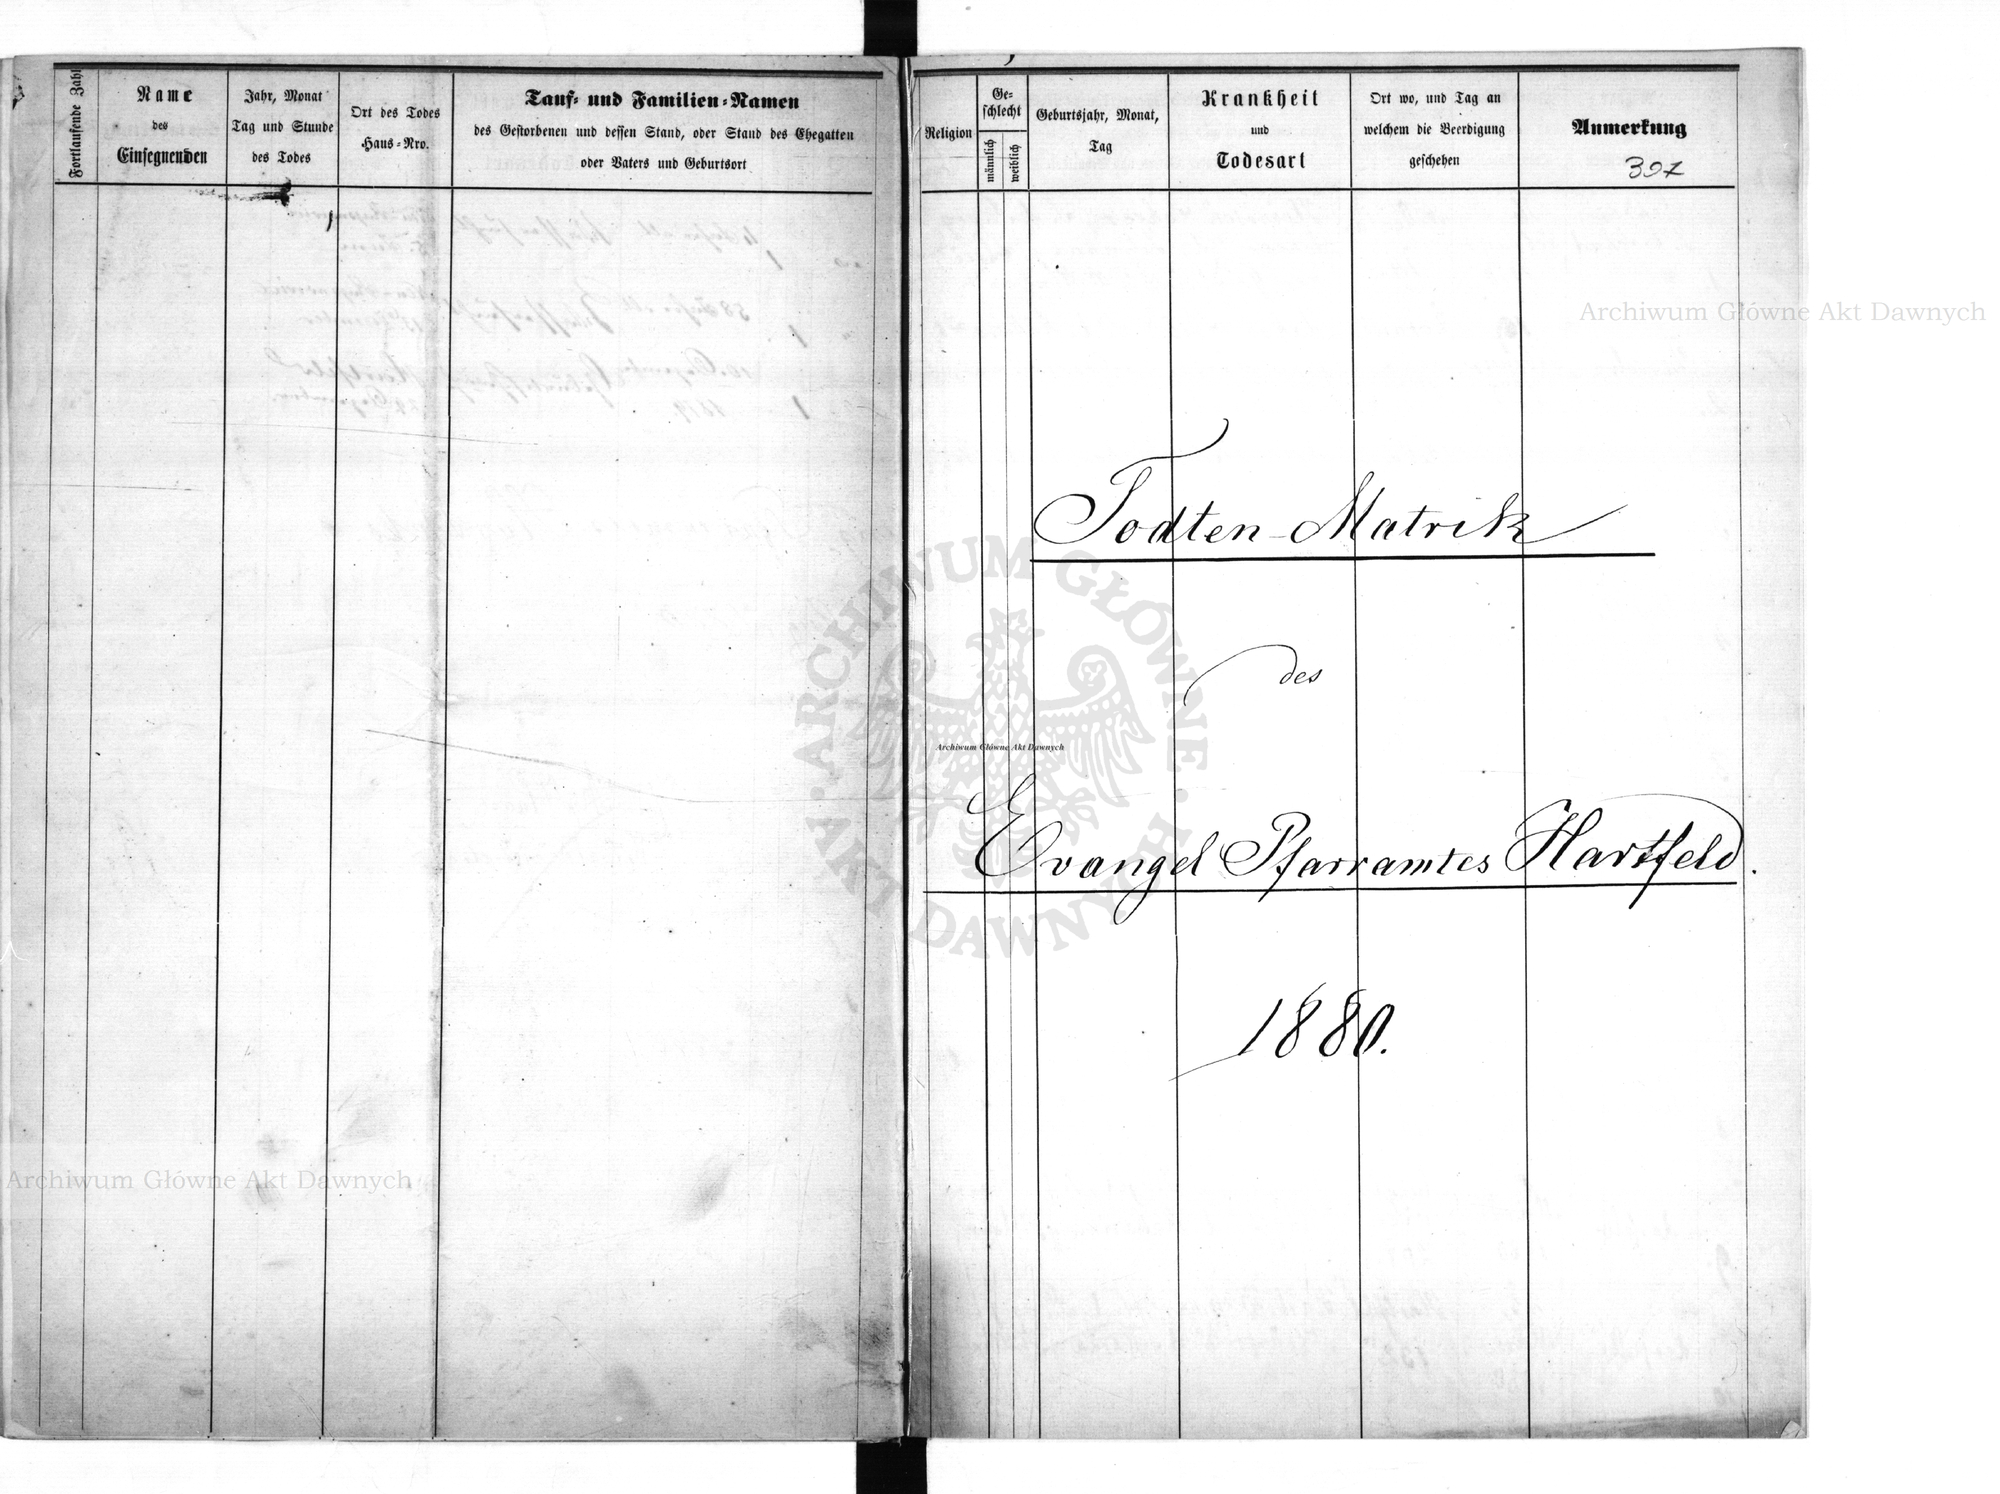 Fortlaufende Zahl
Name
des
Einsegnenden
Jahr, Monat
Tag und Stunde
des Todes
Ort des Todes
Haus-Nro.
Tauf- und Familien-Namen
des Gestorbenen und dessen Stand, oder Stand des Ehegatten
oder Vaters und Geburtsort
Religion
Ge-
schlecht
männlich
weiblich
Geburtsjahr, Monat,
Tag
Krankheit
und
Todesart
Ort wo, und Tag an
welchem die Beerdigung
geschehen
Anmerkung
397
Archiwum Główne Akt Dawnych
Todten-Matrik
des
ARCHIWUM GŁÓWNE · AKT DAWNYCH ·
Archiwum Główne Akt Dawnych
Evangel Pfarramtes Hartfeld.
1880.
Archiwum Główne Akt Dawnych